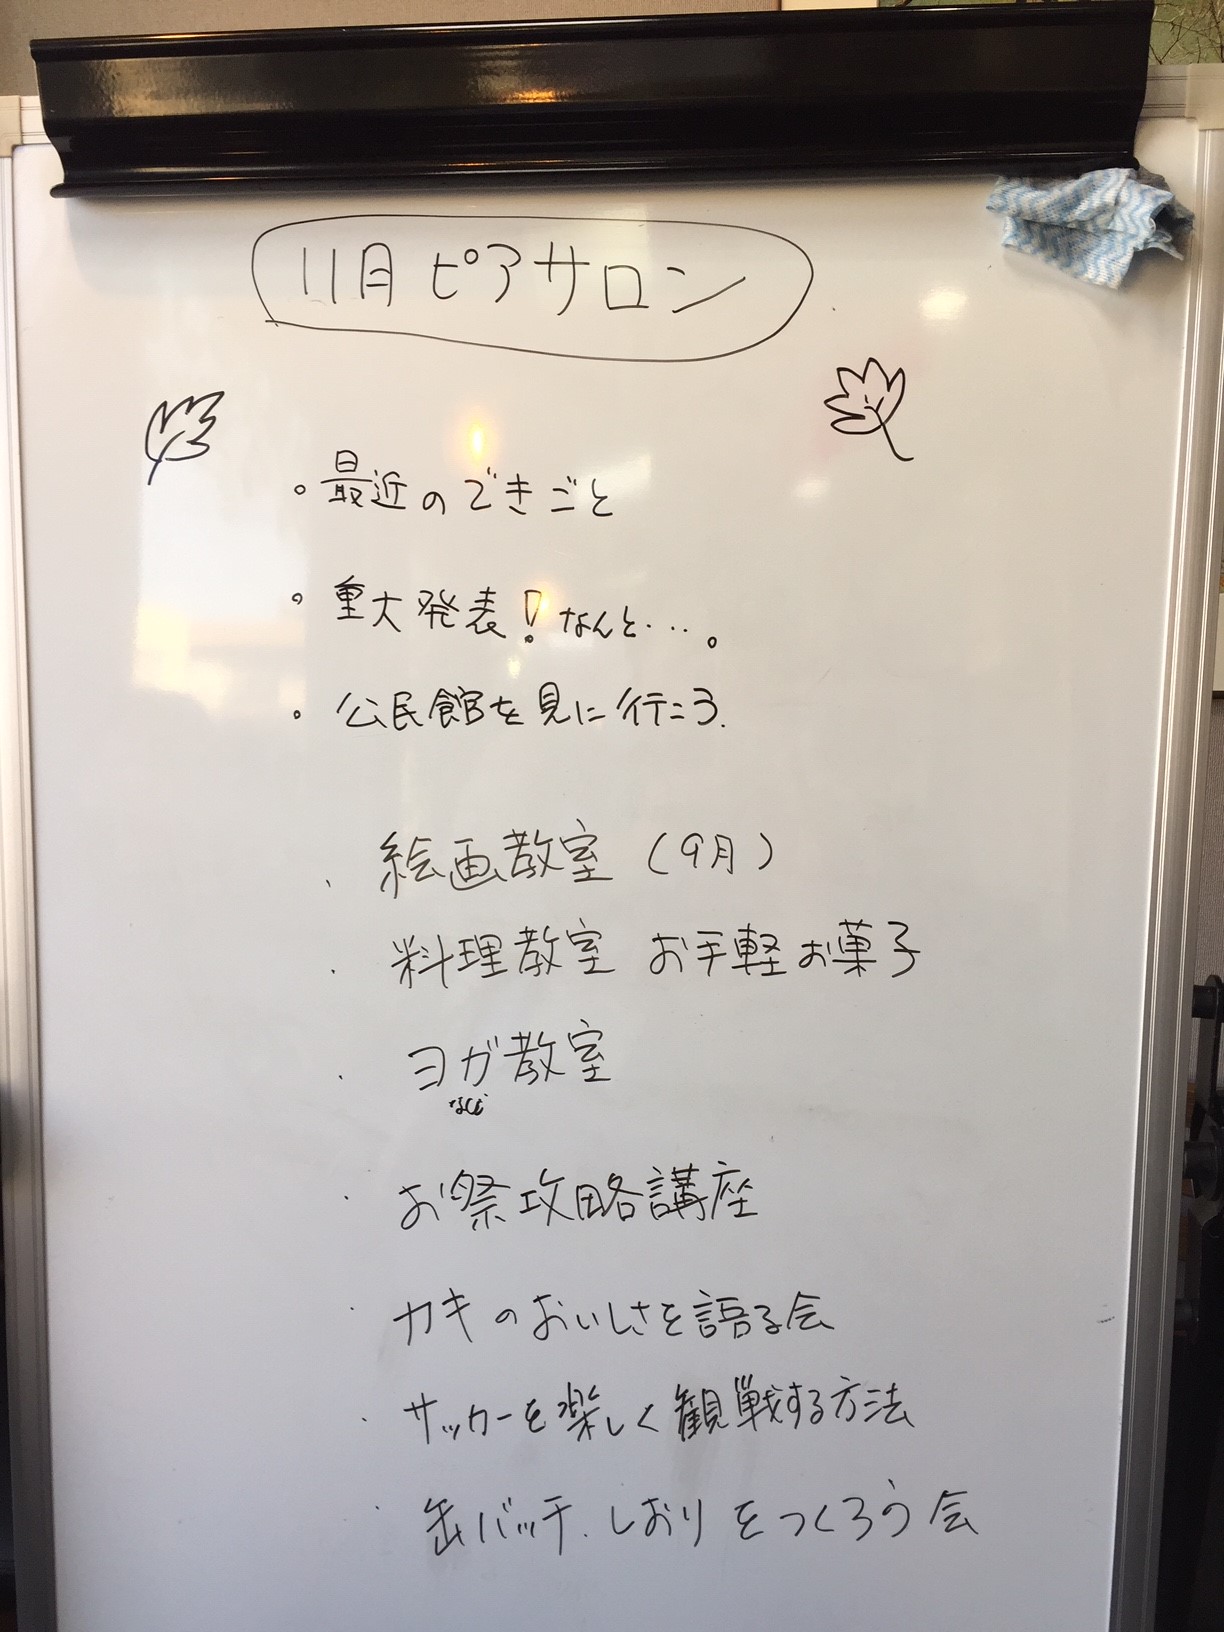 11月ピアサロン
。最近のできごと
。重大発表!なんと・・・。
。公民館を見に行こう.
・絵画教室(9月)
・料理教室 お手軽お菓子
・ヨガ教室
・お祭攻略講座
・カキのおいしさを語る会
・サッカーを楽しく観戦する方法
・缶バッチ.しおりをつくろう会